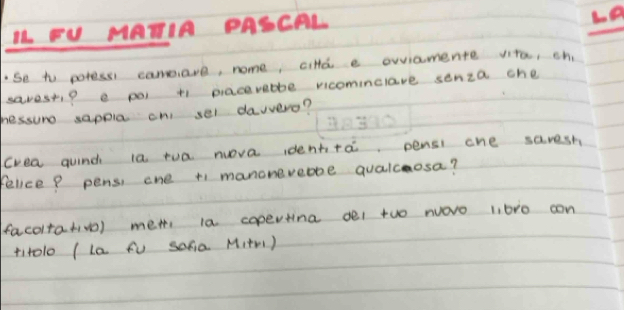 IL FU MATTIA PASCAL
LA
• Se tu potessi cambiare, nome, città e ovviamente vita, chi
saresti? e poi ti piacerebbe ricominciare senza che
nessuno sappia chi sei davvero?
Crea quindi la tua nuova identità, pensi che saresti
felice? pensi che ti mancherebbe qualcosa?
facoltativo) metti la copertina del tuo nuovo libro con
titolo (La fu Sofia Mitri)